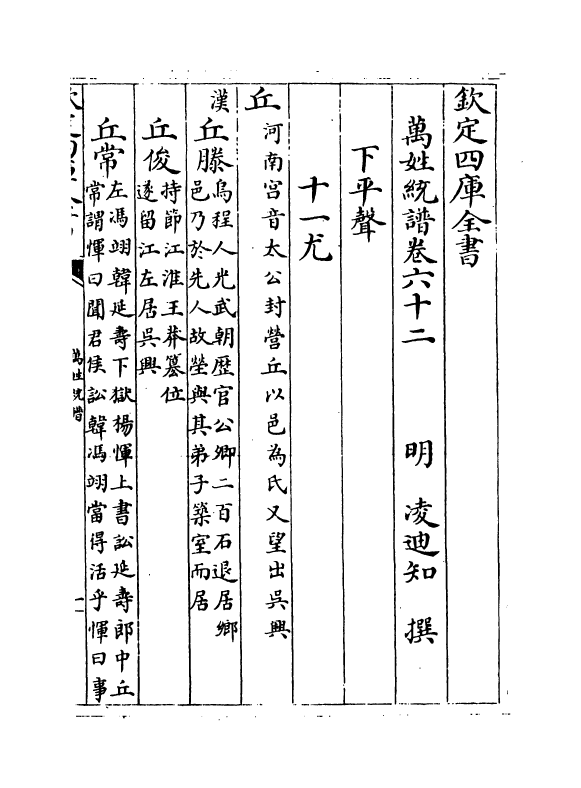 欽定四庫全書
萬姓統譜卷六十二 明 凌迪知 撰
下平聲
十一尤
丘 河南宮音太公封營丘以邑為氏又望出吳興
漢
丘滕 烏程人光武朝歷官公卿二百石退居鄉
邑乃於先人故塋與其弟子築室而居
丘俊 持節江淮王莽簒位
遂留江左居吳興
丘常 左馮翊韓延壽下獄楊惲上書訟延壽郎中丘
常謂惲曰聞君侯訟韓馮翊當得活乎惲曰事
萬姓統譜